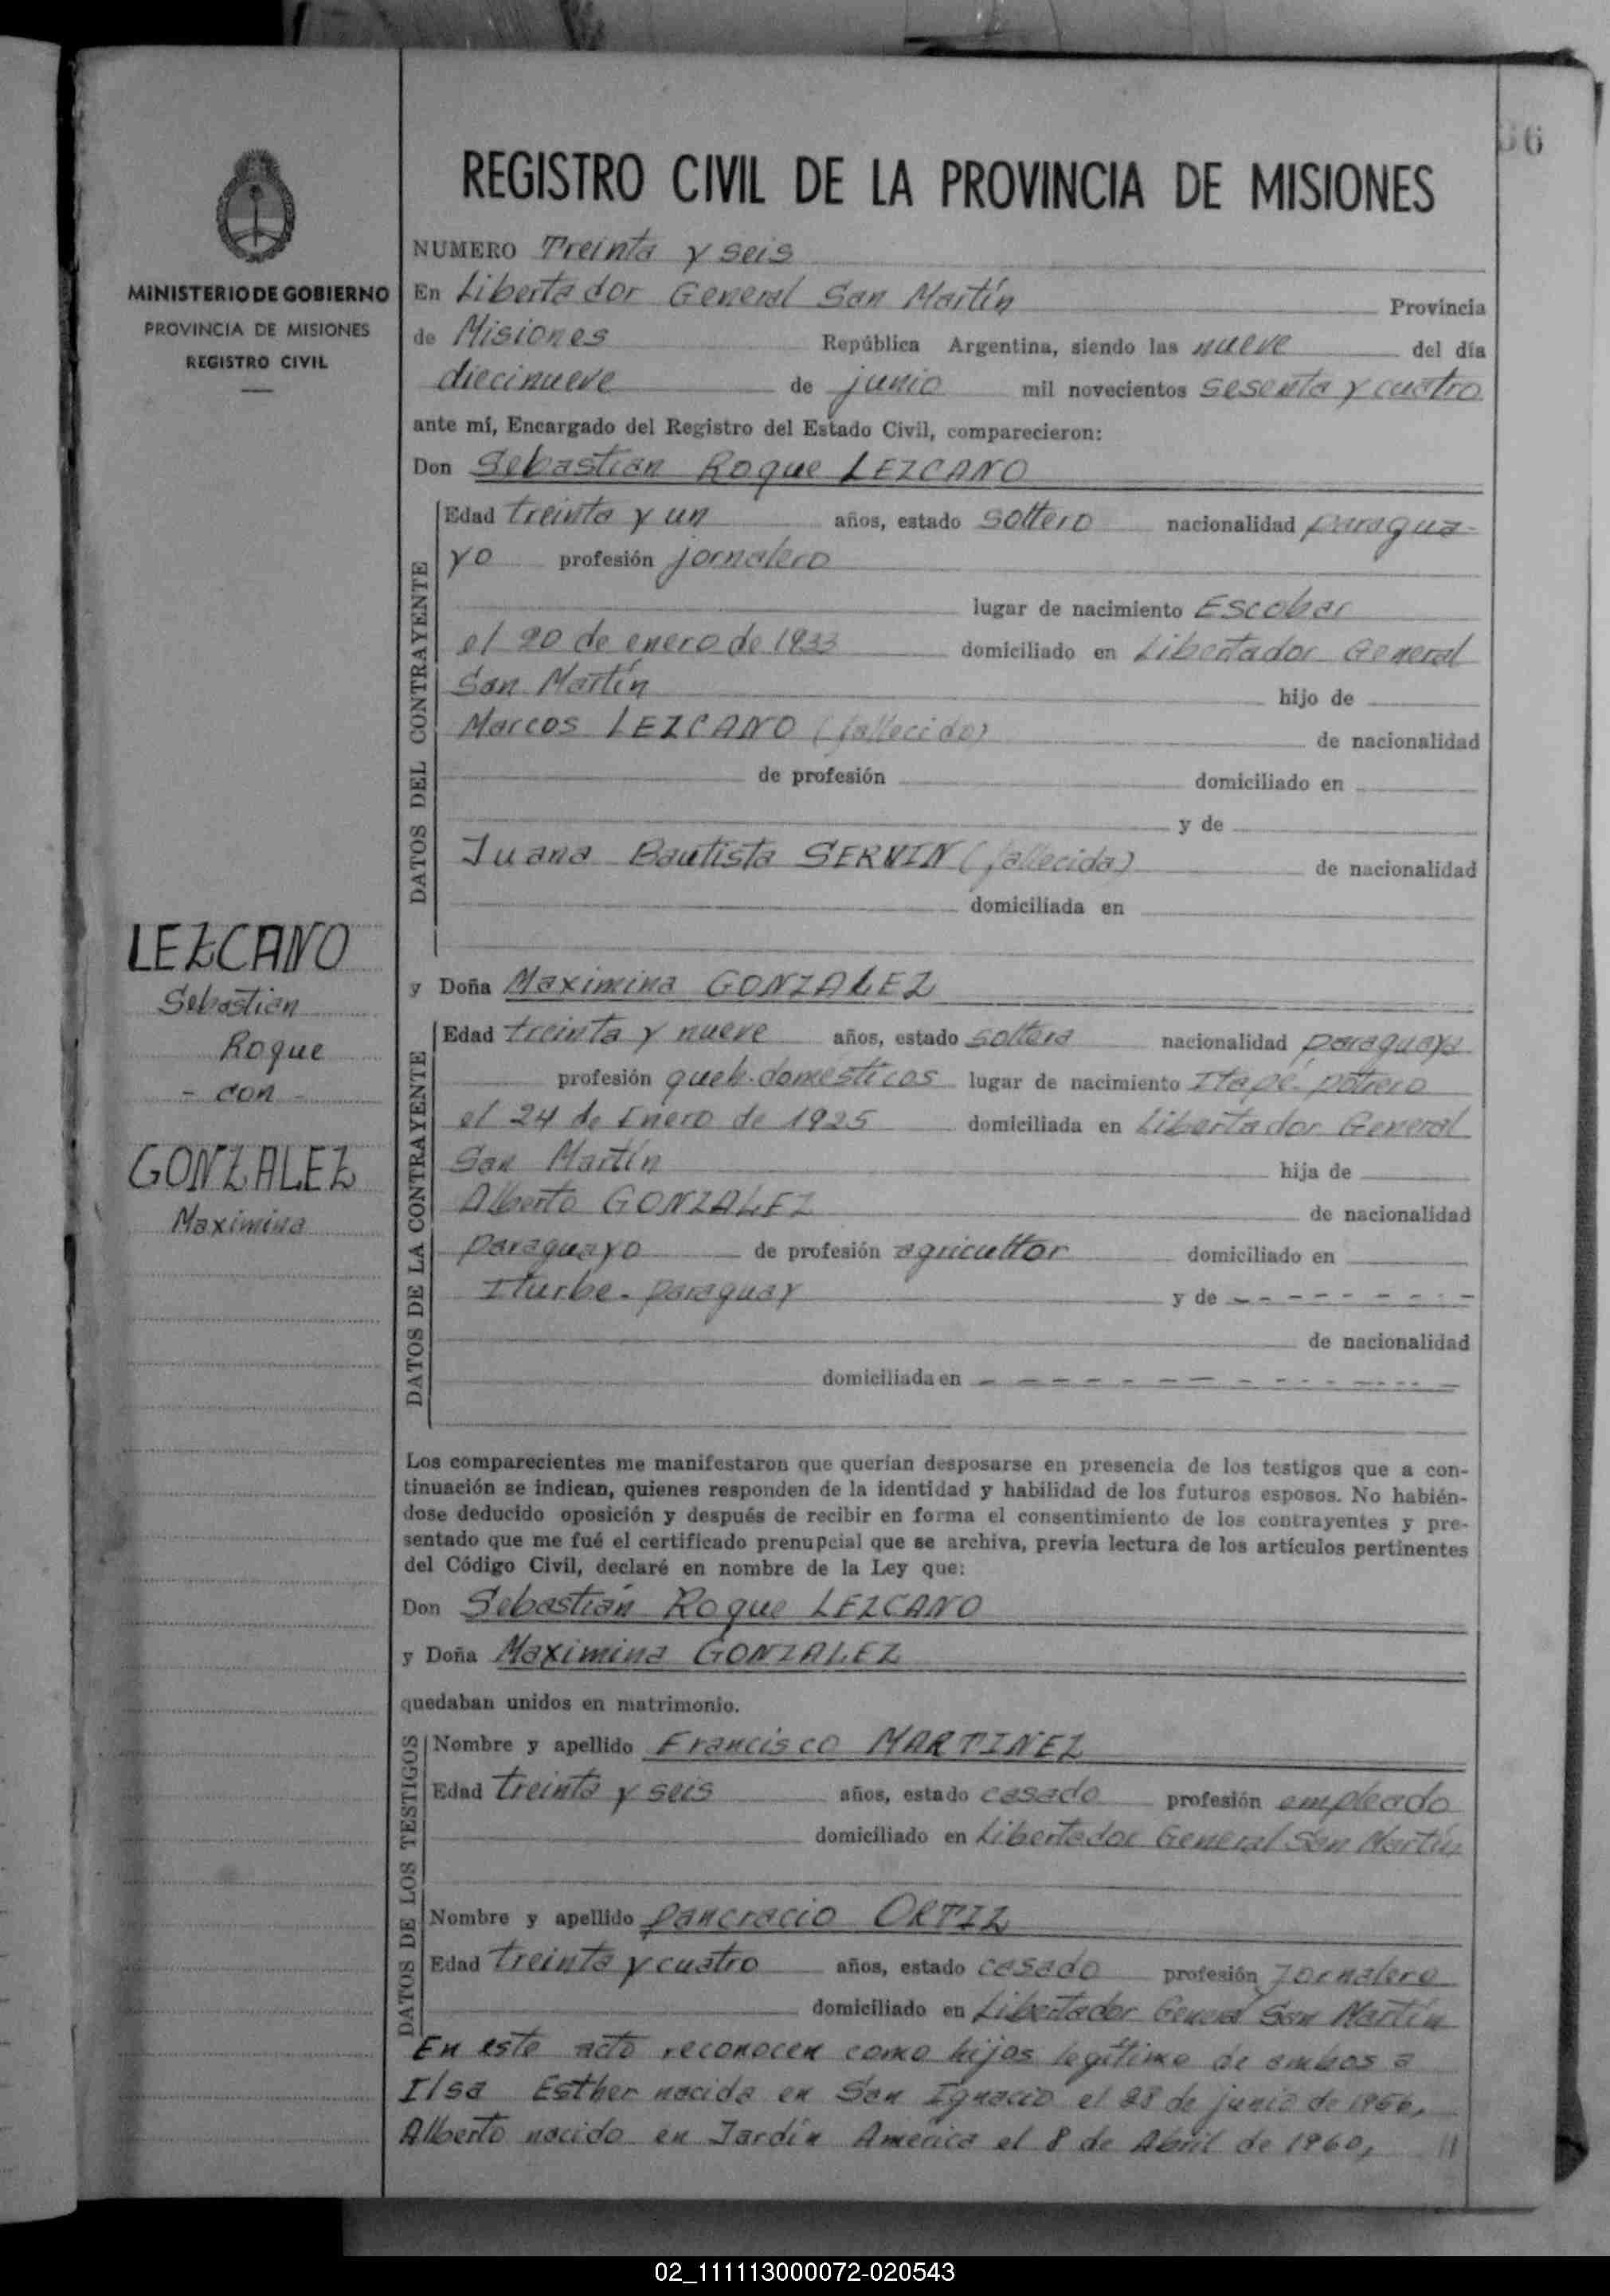 36
REGISTRO CIVIL DE LA PROVINCIA DE MISIONES
MINISTERIO DE GOBIERNO
PROVINCIA DE MISIONES
REGISTRO CIVIL
NUMERO Treinta y seis
En Libertador General San Martín Provincia
de Misiones República Argentina, siendo las nueve del día
diecinueve de junio mil novecientos sesenta y cuatro
ante mí, Encargado del Registro del Estado Civil, comparecieron:
Don Sebastián Roque LEZCANO
DATOS DEL CONTRAYENTE
Edad treinta y un años, estado soltero nacionalidad paragua-
yo profesión jornalero
lugar de nacimiento Escobar
el 20 de enero de 1933 domiciliado en Libertador General
San Martín hijo de
Marcos LEZCANO (fallecido) de nacionalidad
de profesión domiciliado en
y de
Juana Bautista SERVIN (fallecida) de nacionalidad
domiciliada en
LEZCANO
Sebastian
Roque
- con -
GONZALEZ
Maximina
y Doña Maximina GONZALEZ
DATOS DE LA CONTRAYENTE
Edad treinta y nueve años, estado soltera nacionalidad paraguaya
profesión queh. domésticos lugar de nacimiento Itapé-potrero
el 24 de Enero de 1925 domiciliada en Libertador General
San Martín hija de
Alberto GONZALEZ de nacionalidad
paraguayo de profesión agricultor domiciliado en
Iturbe - paraguay y de - - - - - - - -
de nacionalidad
domiciliada en - - - - - - - - - - - -
Los comparecientes me manifestaron que querían desposarse en presencia de los testigos que a con-
tinuación se indican, quienes responden de la identidad y habilidad de los futuros esposos. No habién-
dose deducido oposición y después de recibir en forma el consentimiento de los contrayentes y pre-
sentado que me fué el certificado prenupcial que se archiva, previa lectura de los artículos pertinentes
del Código Civil, declaré en nombre de la Ley que:
Don Sebastián Roque LEZCANO
y Doña Maximina GONZALEZ
quedaban unidos en matrimonio.
DATOS DE LOS TESTIGOS
Nombre y apellido Francisco MARTINEZ
Edad treinta y seis años, estado casado profesión empleado
domiciliado en Libertador General San Martín
Nombre y apellido pancracio ORTIZ
Edad treinta y cuatro años, estado casado profesión Jornalero
domiciliado en Libertador General San Martín
En este acto reconocen como hijos legítimo de ambos a
Ilsa Esther nacida en San Ignacio el 28 de junio de 1956,
Alberto nacido en Jardín America el 8 de Abril de 1960, //
02_111113000072-020543